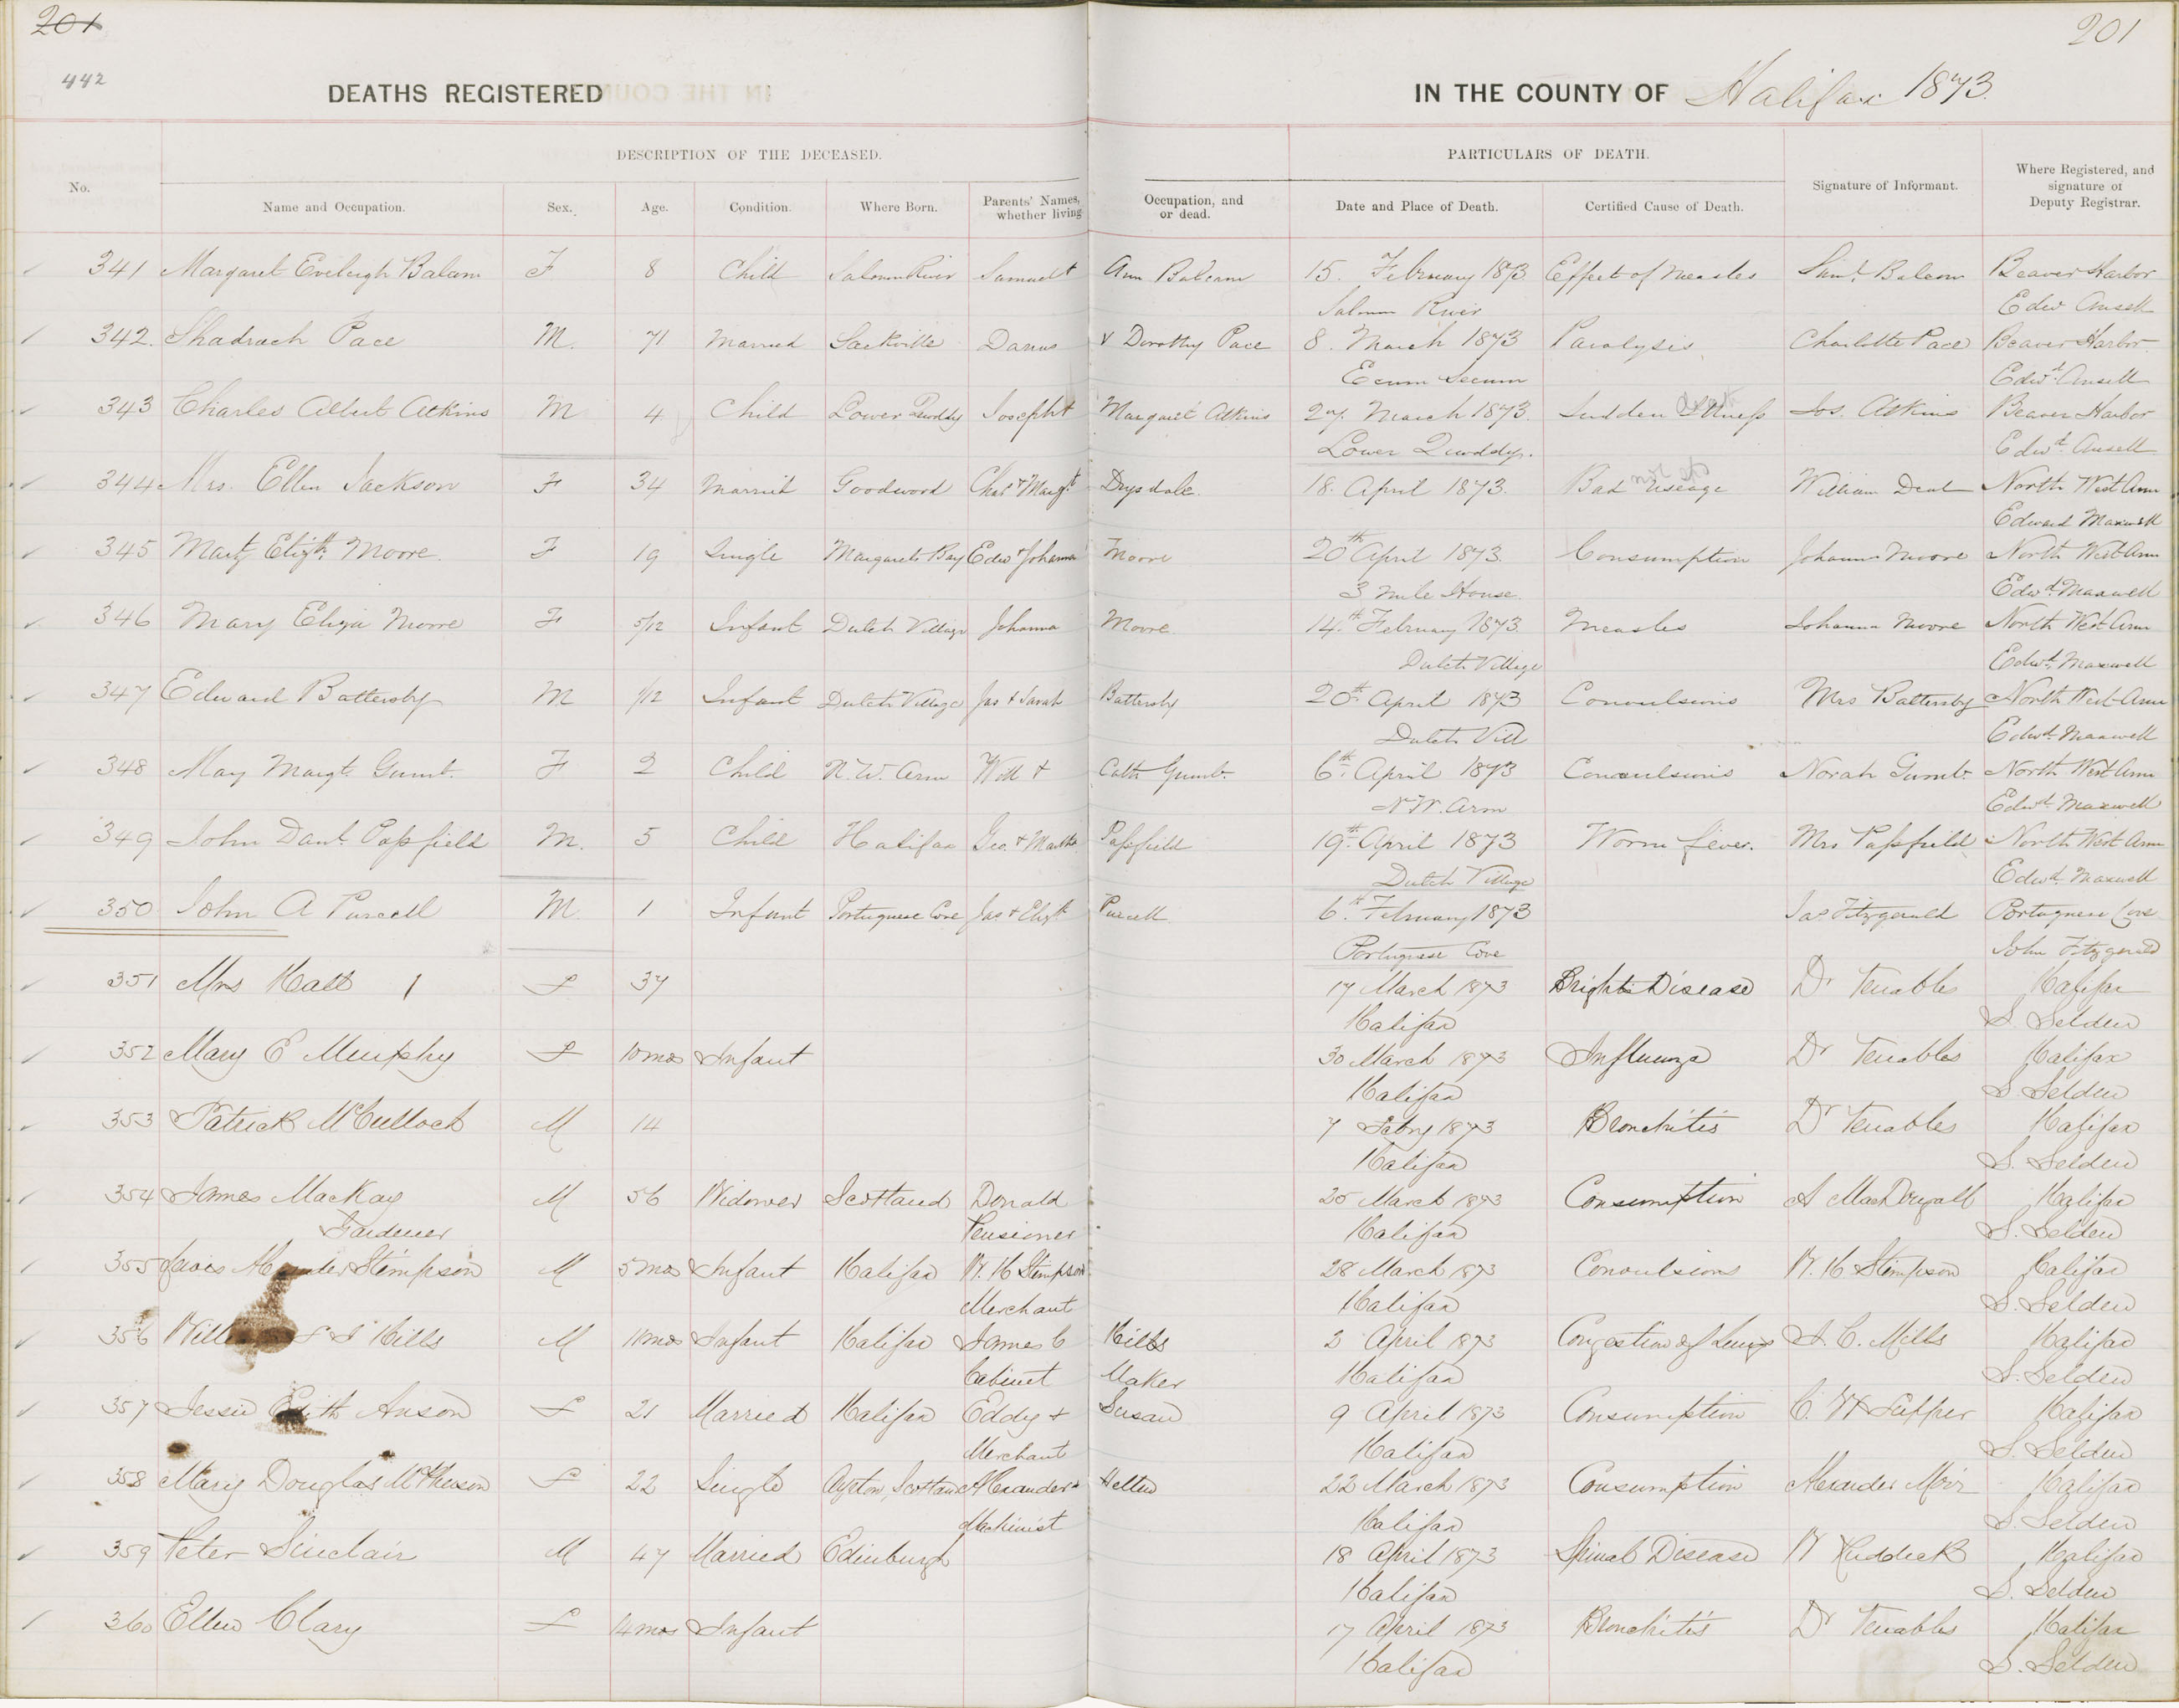 201 201
442
DEATHS REGISTERED IN THE COUNTY OF Halifax 1873.
DESCRIPTION OF THE DECEASED. PARTICULARS OF DEATH.
No. Name and Occupation. Sex. Age. Condition. Where Born. Parents' Names, whether living Occupation, and or dead. Date and Place of Death. Certified Cause of Death. Signature of Informant. Where Registered, and signature of Deputy Registrar.
341 Margaret Eveleigh Balcam F 8 Child Salmon River Samuel + Ann Balcam 15. February 1873 Effect of Measles Saml. Balcom Beaver Harbor
Salmon River Edwd Ansell
342. Shadrach Pace M. 71 Married Sackville Darius & Dorothy Pace 8. March 1873 Paralysis Charlotte Pace Beaver Harbor
Ecum Secum Edwd. Ansell
343 Charles Albert Atkins M 4 Child Lower Quoddy Joseph + Margaret Atkins 27. March 1873. Sudden Illness Jos. Atkins Beaver Harbor
Lower Quoddy. Edwd. Ansell
344 Mrs. Ellen Jackson F 34 Married Goodwood Chas + Margt Drysdale. 18. April 1873. Bad useage William Deal North West Arm
Edward Maxwell
345 Mary Elizth. Moore. F 19 Single Margarets Bay Edwd + Johanna Moore 20th April 1873. Consumption Johanna Moore North West Arm
3 Mile House. Edwd. Maxwell
346 Mary Eliza Moore F 5/12 Infant Dutch Village Johanna Moore 14.th February 1873 Measles Johanna Moore North West Arm
Dutch Village Edwd. Maxwell
347 Edward Battersby M 1/12 Infant Dutch Village Jas + Sarah Battersby 20th. April 1873 Convulsions Mrs Battersby North West Arm
Dutch Vill Edwd. Maxwell
348 May Margt. Gumb. F 2 Child N.W. Arm Will + Cath Gumb. 6th. April 1873 Convulsions Norah Gumb. North West Arm
N.W. Arm Edwd. Maxwell
349 John Danl. Passfield M. 5 Child Halifax Geo. + Martha Passfield 19th. April 1873 Worm fever. Mrs Passfield North West Arm
Dutch Village Edwd. Maxwell
350 John A Purcell M. 1 Infant Portuguese Cove Jas. + Elizth Purcell 6.th February 1873 Jas Fitzgerald Portuguese Cove
Portuguese Cove John Fitzgerald
351 Mrs Hall F 37 17 March 1873 Brights Disease Dr Venables Halifax
Halifax S. Selden
352 Mary E Murphy F 10 mos Infant 30 March 1873 Influenza Dr Venables Halifax
Halifax S Selden
353 Patrick McCulloch M 14 7 Febry 1873 Bronchitis Dr Venables Halifax
Halifax S. Selden
354 James MacKay M 56 Widower Scotland Donald 25 March 1873 Consumption A MacDougall Halifax
Gardener Pensioner Halifax S. Selden
355 Stimpson M 5 mos Infant Halifax W. H Stimpson 28 March 1873 Convulsions W. H Stimpson Halifax
Merchant Halifax S. Selden
356 Hills M 11 mos Infant Halifax James C Hills 2 April 1873 Congestion of Lungs J. C. Hills Halifax
Cabinet Maker Halifax S. Selden
357 Jessie Edith Anson F 21 Married Halifax Eddy + Susan 9 April 1873 Consumption C. W Halifax
Merchant Halifax S. Selden
358 Mary Douglas McPherson F 22 Single Ayrton, Scotland Alexander + Hellen 22 March 1873 Consumption Alexander Moir Halifax
Machinist Halifax S. Selden
359 Peter Sinclair M 47 Married Edinburgh 18 April 1873 Spinal Disease W Halifax
Halifax S. Selden
360 Ellen Clary F 14 mos Infant 17 April 1873 Bronchitis Dr Venables Halifax
Halifax S. Selden